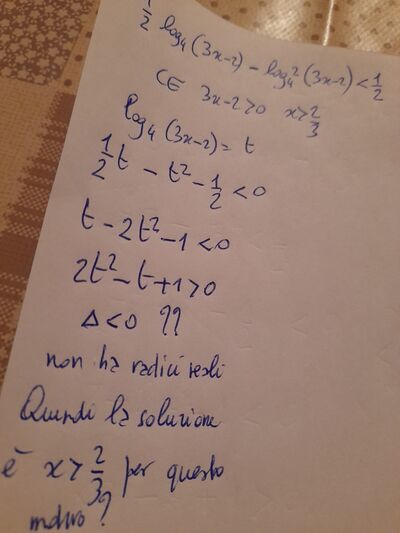 1/2 log₄(3x-2) - log₄²(3x-2) < 1/2
CE 3x-2>0 x>2/3
log₄(3x-2)= t
1/2 t - t² - 1/2 < 0
t - 2t² - 1 < 0
2t² - t + 1 > 0
Δ < 0 ??
non ha radici reali
Quindi la soluzione
è x > 2/3 per questo
motivo?